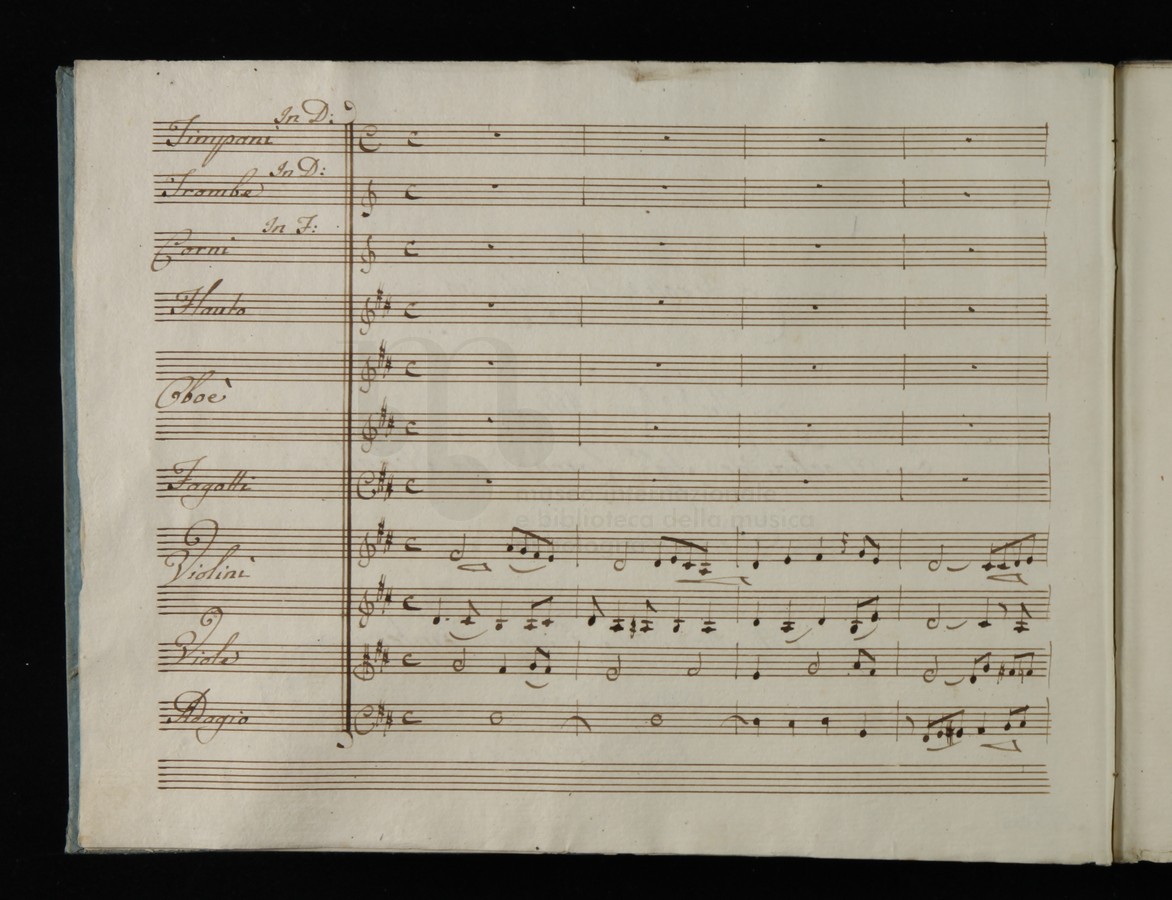 In D:
Timpani
In D:
Trombe
In F:
Corni
Flauto
Oboè
Fagotti
Violini
Viole
Adagio
museo internazionale
e biblioteca della musica